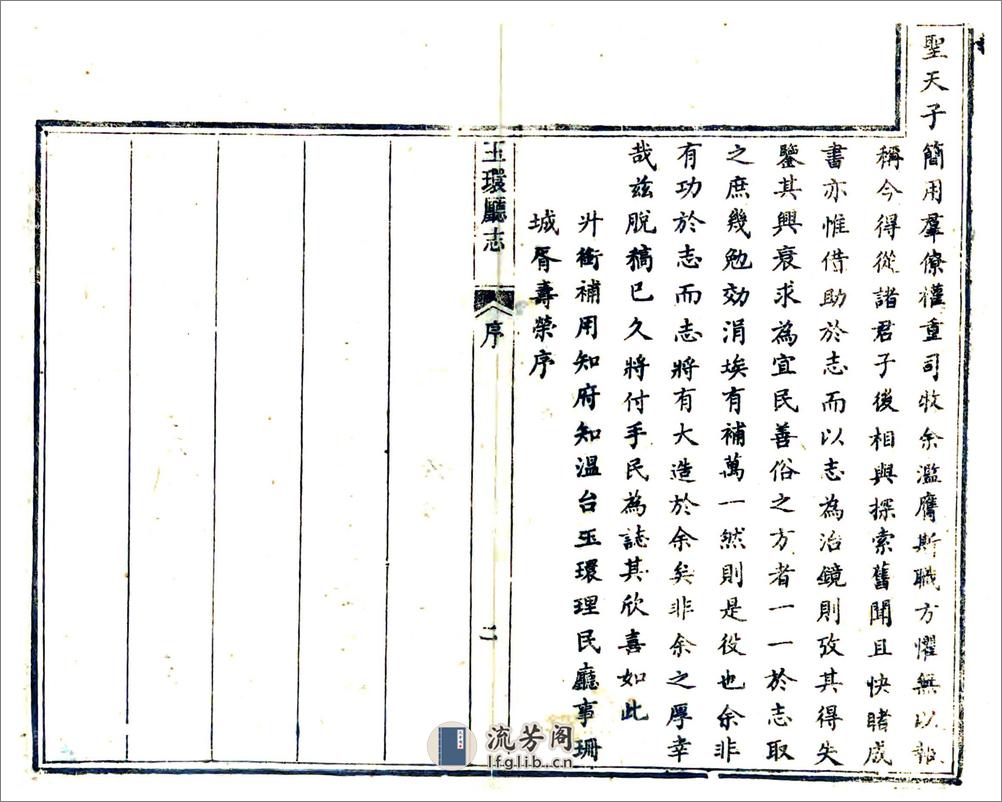 聖天子簡用羣僚權重司牧余濫膺斯職方懼無以報
稱今得從諸君子後相與探索舊聞且快睹成
書亦惟借助於志而以志為治鏡則攷其得失
鑒其興衰求為宜民善俗之方者一一於志取
之庶幾勉効涓埃有補萬一然則是役也余非
有功於志而志將有大造於余矣非余之厚幸
哉茲脫稿已久將付手民為誌其欣喜如此
升銜補用知府知溫台玉環理民廳事珊
城胥壽榮序
玉環廳志
序
二
流芳阁
lfglib.cn